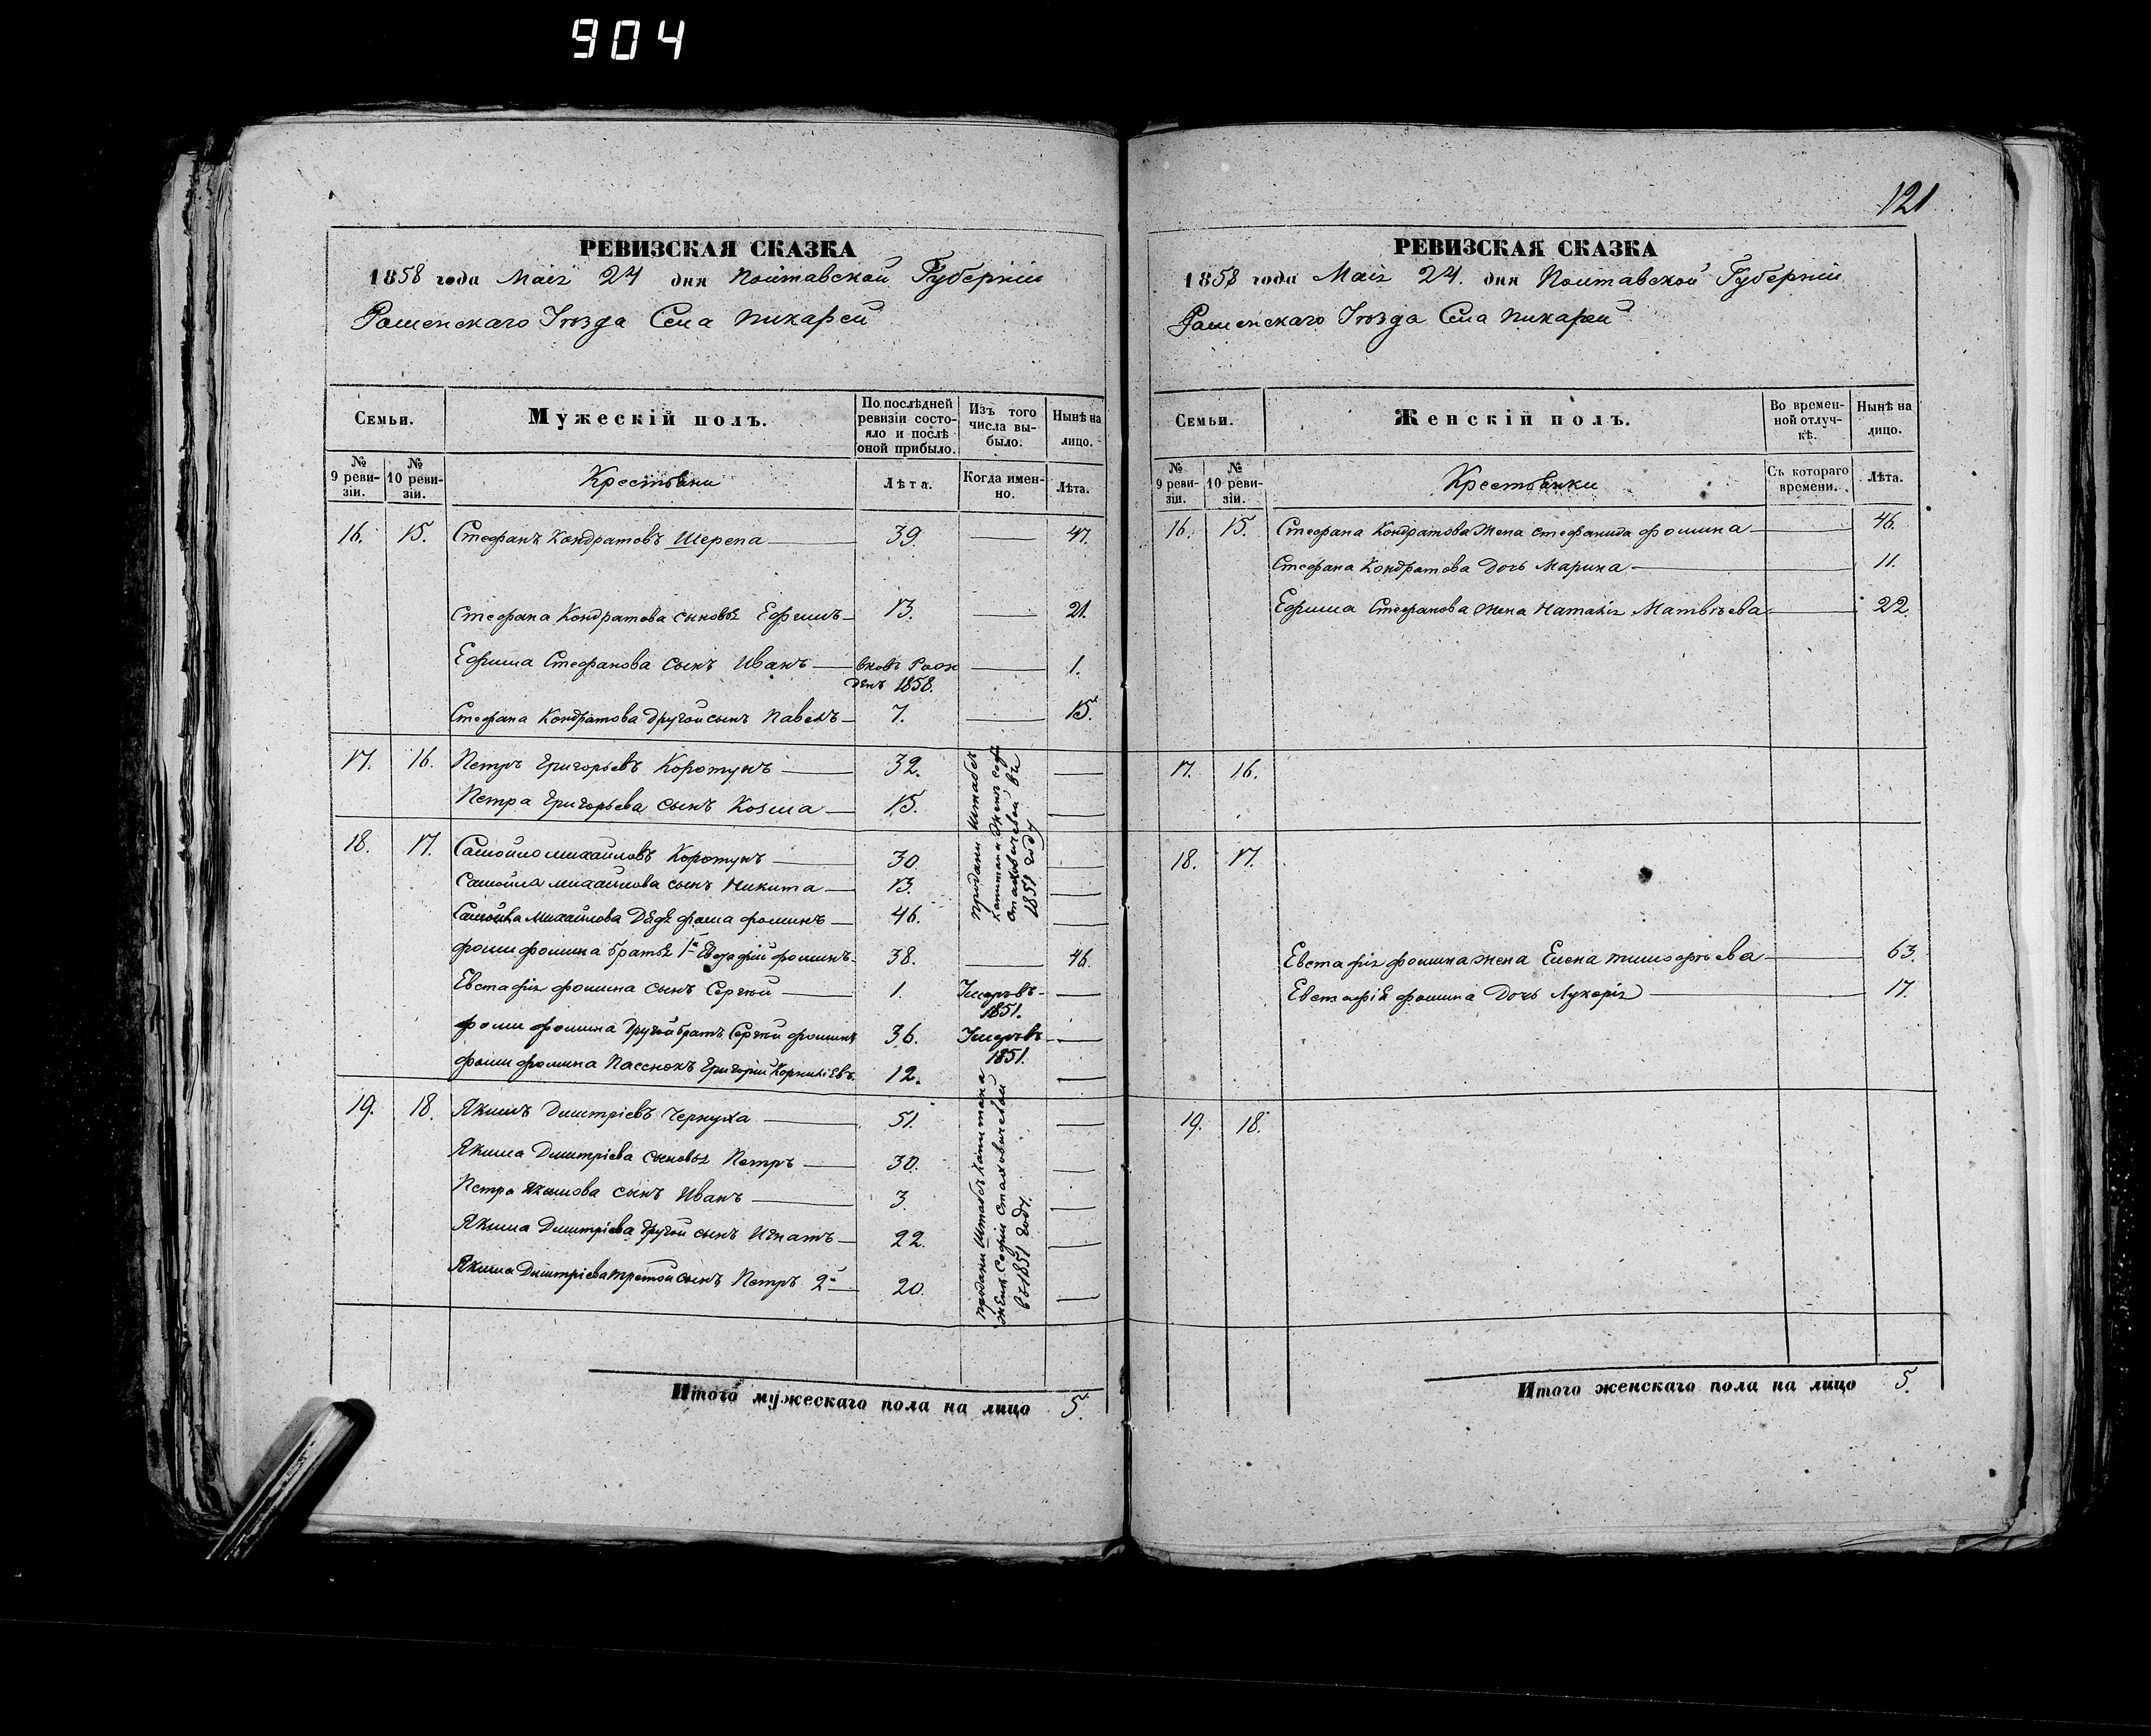 904
РЕВИЗСКАЯ СКАЗКА
1858 года Маія 24 дня Полтавской Губерніи
Роменскаго Уѣзда Села Пикарей
Семьи.
Мужескій полъ.
По послѣдней ревизіи состояло и послѣ оной прибыло.
Изъ того числа выбыло.
Нынѣ на лицо.
№ 9 ревизіи.
№ 10 ревизіи.
Крестьяни
Лѣта.
Когда именно.
Лѣта.
16. 15. Стефанъ Кондратовъ Шерепа 39. 47.
Стефана Кондратова сыновья Ефимъ 13. 21.
Ефима Стефанова сынъ Иванъ вновь Рожденъ 1858. 1.
Стефана Кондратова другой сынъ Павелъ 7. 15.
17. 16. Петръ Григорьевъ Коротунъ 32.
Петра Григорьева сынъ Козма 15.
проданы Штабсъ Капитана Женѣ Софіи Стаховичевой въ 1851 году
18. 17. Самойло Михайловъ Коротунъ 30
Самойла Михайлова сынъ Никита 13.
Самойла Михайлова Дядя Фома Фоминъ 46.
Фомы Фомина братья 1й Евстафій Фоминъ 38. 46.
Евстафія Фомина сынъ Сергѣй 1. Умеръ въ 1851.
Фомы Фомина другой братъ Сергѣй Фоминъ 36. Умеръ въ 1851.
Фомы Фомина Пасынокъ Григорій Корниліевъ 12.
19. 18. Якимъ Дмитріевъ Чернуха 51.
Якима Дмитріева сыновья Петръ 30.
Петра Якимова сынъ Иванъ 3.
Якима Дмитріева другой сынъ Игнатъ 22.
Якима Дмитріева третой сынъ Петръ 2й 20.
проданы Штабсъ Капитана Женѣ Софіи Стаховичевой въ 1851 году.
Итого мужескаго пола на лицо 5.
121
РЕВИЗСКАЯ СКАЗКА
1858 года Маія 24. дня Полтавской Губерніи
Роменскаго Уѣзда Села Пикарей
Семьи.
Женскій полъ.
Во временной отлучкѣ.
Нынѣ на лицо.
№ 9 ревизіи.
№ 10 ревизіи.
Крестьянки
Съ котораго времени.
Лѣта.
16. 15. Стефана Кондратова Жена Стефанида Фомина 46.
Стефана Кондратова Дочь Марина 11.
Ефима Стефанова Жена Наталія Матвѣева 22
17. 16.
18. 17.
Евстафія Фомина жена Елена Тимофѣева 63.
Евстафія Фомина Дочь Лукерія 17.
19. 18.
Итого женскаго пола на лицо 5.